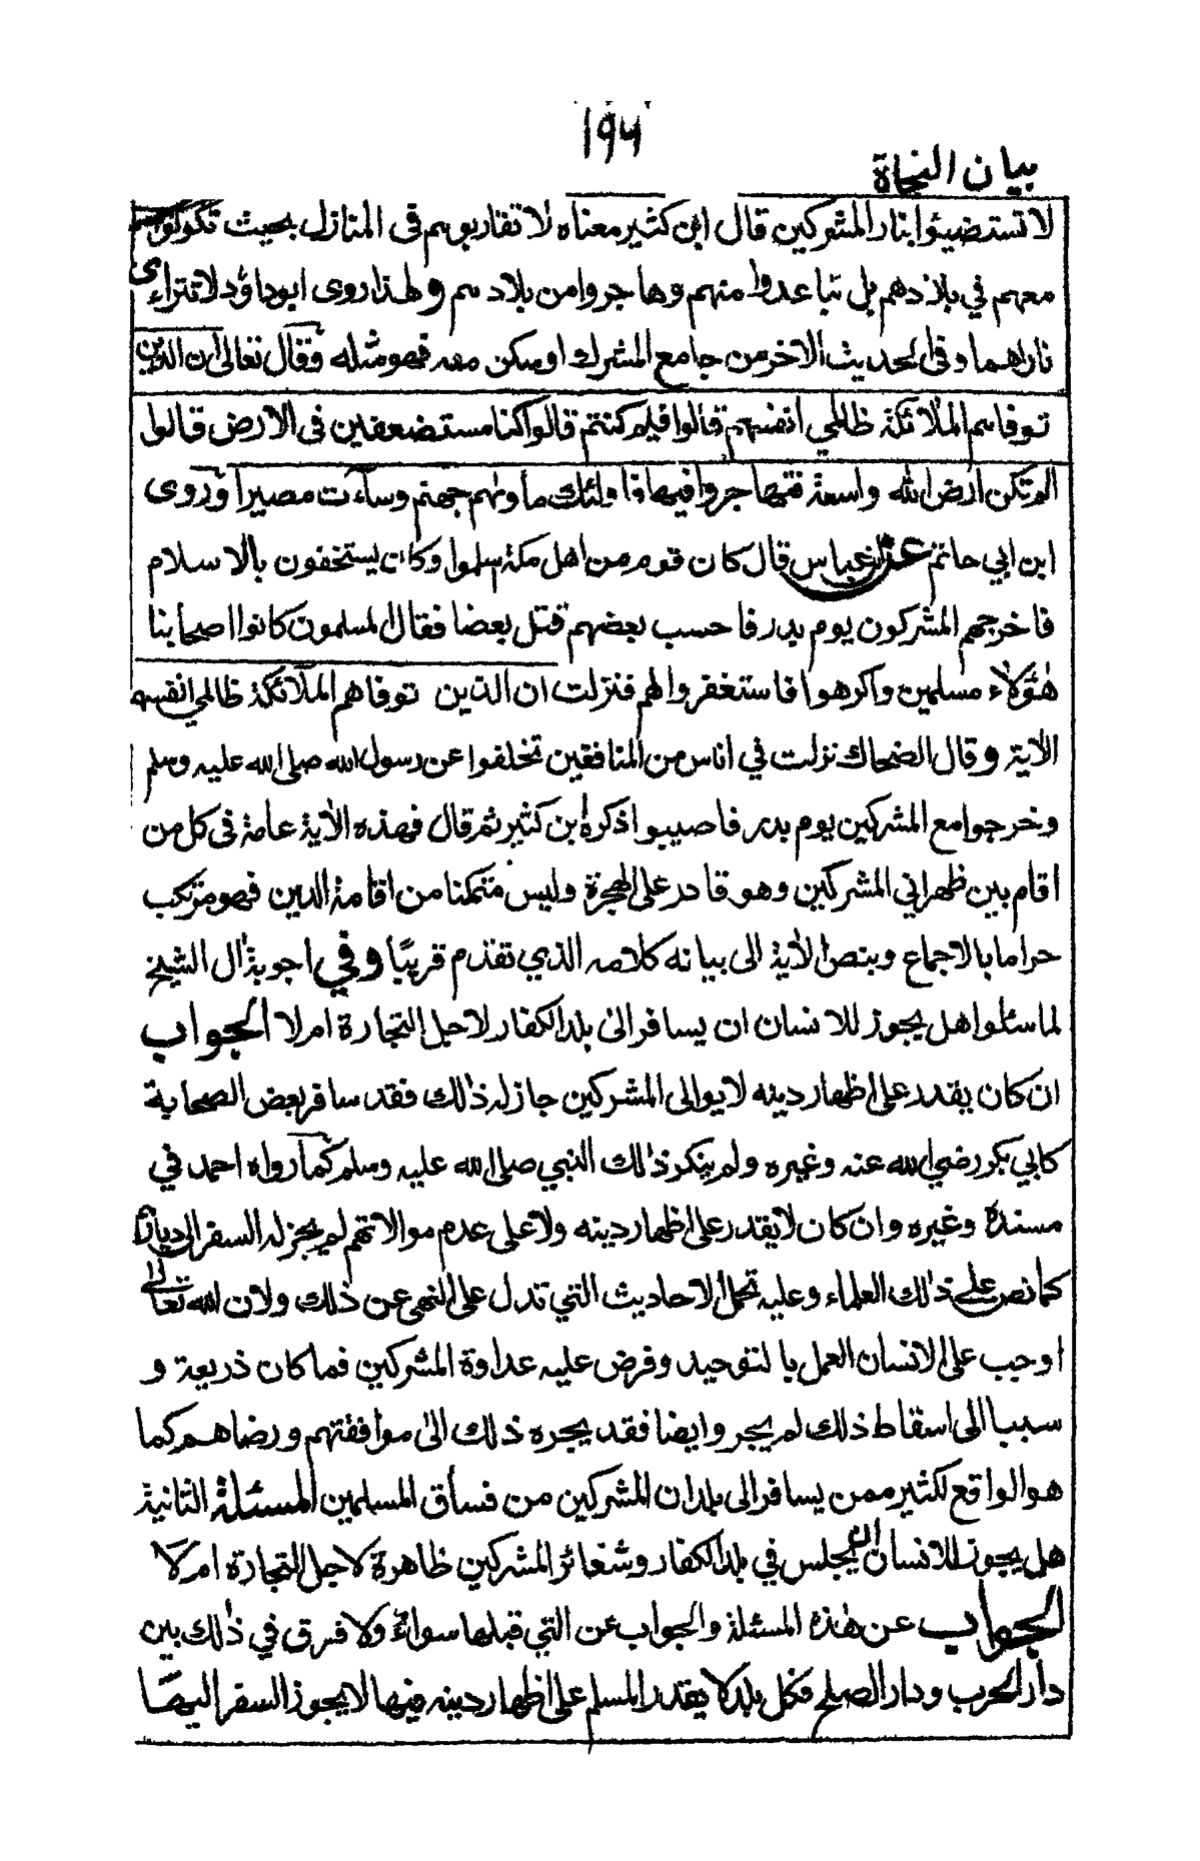 ۱۹۶
بيان النجاة
لا تستضيئوا بنار المشركين قال ابن كثير معناه لا تقاربوهم في المنازل بحيث
معهم في بلادهم بل تباعدوا منهم وهاجروا من بلادهم ولهذا روى ابو داؤد لا تتراءى
ناراهما وفي الحديث الاخر من جامع المشرك او سكن معه فهو مثله وقال تعالى ان الذين
توفاهم الملائكة ظالمي انفسهم قالوا فيم كنتم قالوا كنا مستضعفين في الارض قالوا
الم تكن ارض الله واسعة فتهاجروا فيها فاولئك مأوٰهم جهنم وساءت مصيرا وروى
ابن ابي حاتم عن ابن عباس قال كان قوم من اهل مكة اسلموا وكان يستخفون بالاسلام
فاخرجهم المشركون يوم بدر فاحسب بعضهم قتل بعضا فقال المسلمون كانوا اصحابنا
هٰؤلاء مسلمين واكرهوا فاستغفروا لهم فنزلت ان الذين توفاهم الملائكة ظالمي انفسهم
الاٰية وقال الضحاك نزلت في اناس من المنافقين تخلفوا عن رسول الله صلى الله عليه وسلم
وخرجوا مع المشركين يوم بدر فاصيبوا ذكره ابن كثير ثم قال فهذه الاٰية عامة في كل من
اقام بين ظهراني المشركين وهو قادر على الهجرة وليس متمكنا من اقامة الدين فهو مرتكب
حراما بالاجماع وبنص الاٰية الى بيانه كلامه الذي تقدم قريبًا وفي اجوبة اٰل الشيخ
لما سئلوا هل يجوز للانسان ان يسافر الى بلد الكفار لاجل التجارة ام لا الجواب
ان كان يقدر على اظهار دينه لا يوالى المشركين جاز له ذٰلك فقد سافر بعض الصحابة
كابي بكر رضي الله عنه وغيره ولم ينكر ذٰلك النبي صلى الله عليه وسلم كما رواه احمد في
مسنده وغيره وان كان لا يقدر على اظهار دينه ولا على عدم موالاتهم لم يجز له السفر الى ديارهم
كما نص على ذٰلك العلماء وعليه تحمل الاحاديث التي تدل على النهي عن ذٰلك ولان الله تعالى
اوجب على الانسان العمل بالتوحيد وفرض عليه عداوة المشركين فما كان ذريعة و
سببا الى اسقاط ذلك لم يجز وايضا فقد يجره ذلك الى موافقتهم ورضاهم كما
هو الواقع لكثير ممن يسافر الى بلدان المشركين من فساق المسلمين المسئلة الثانية
هل يجوز للانسان ان يجلس في بلد الكفار وشعائر المشركين ظاهرة لاجل التجارة ام لا
الجواب عن هٰذه المسئلة والجواب عن التي قبلها سواء ولا فرق في ذٰلك بين
دار الحرب ودار الصلح فكل بلد لا يقدر المسلم على اظهار دينه فيها لا يجوز السفر اليها